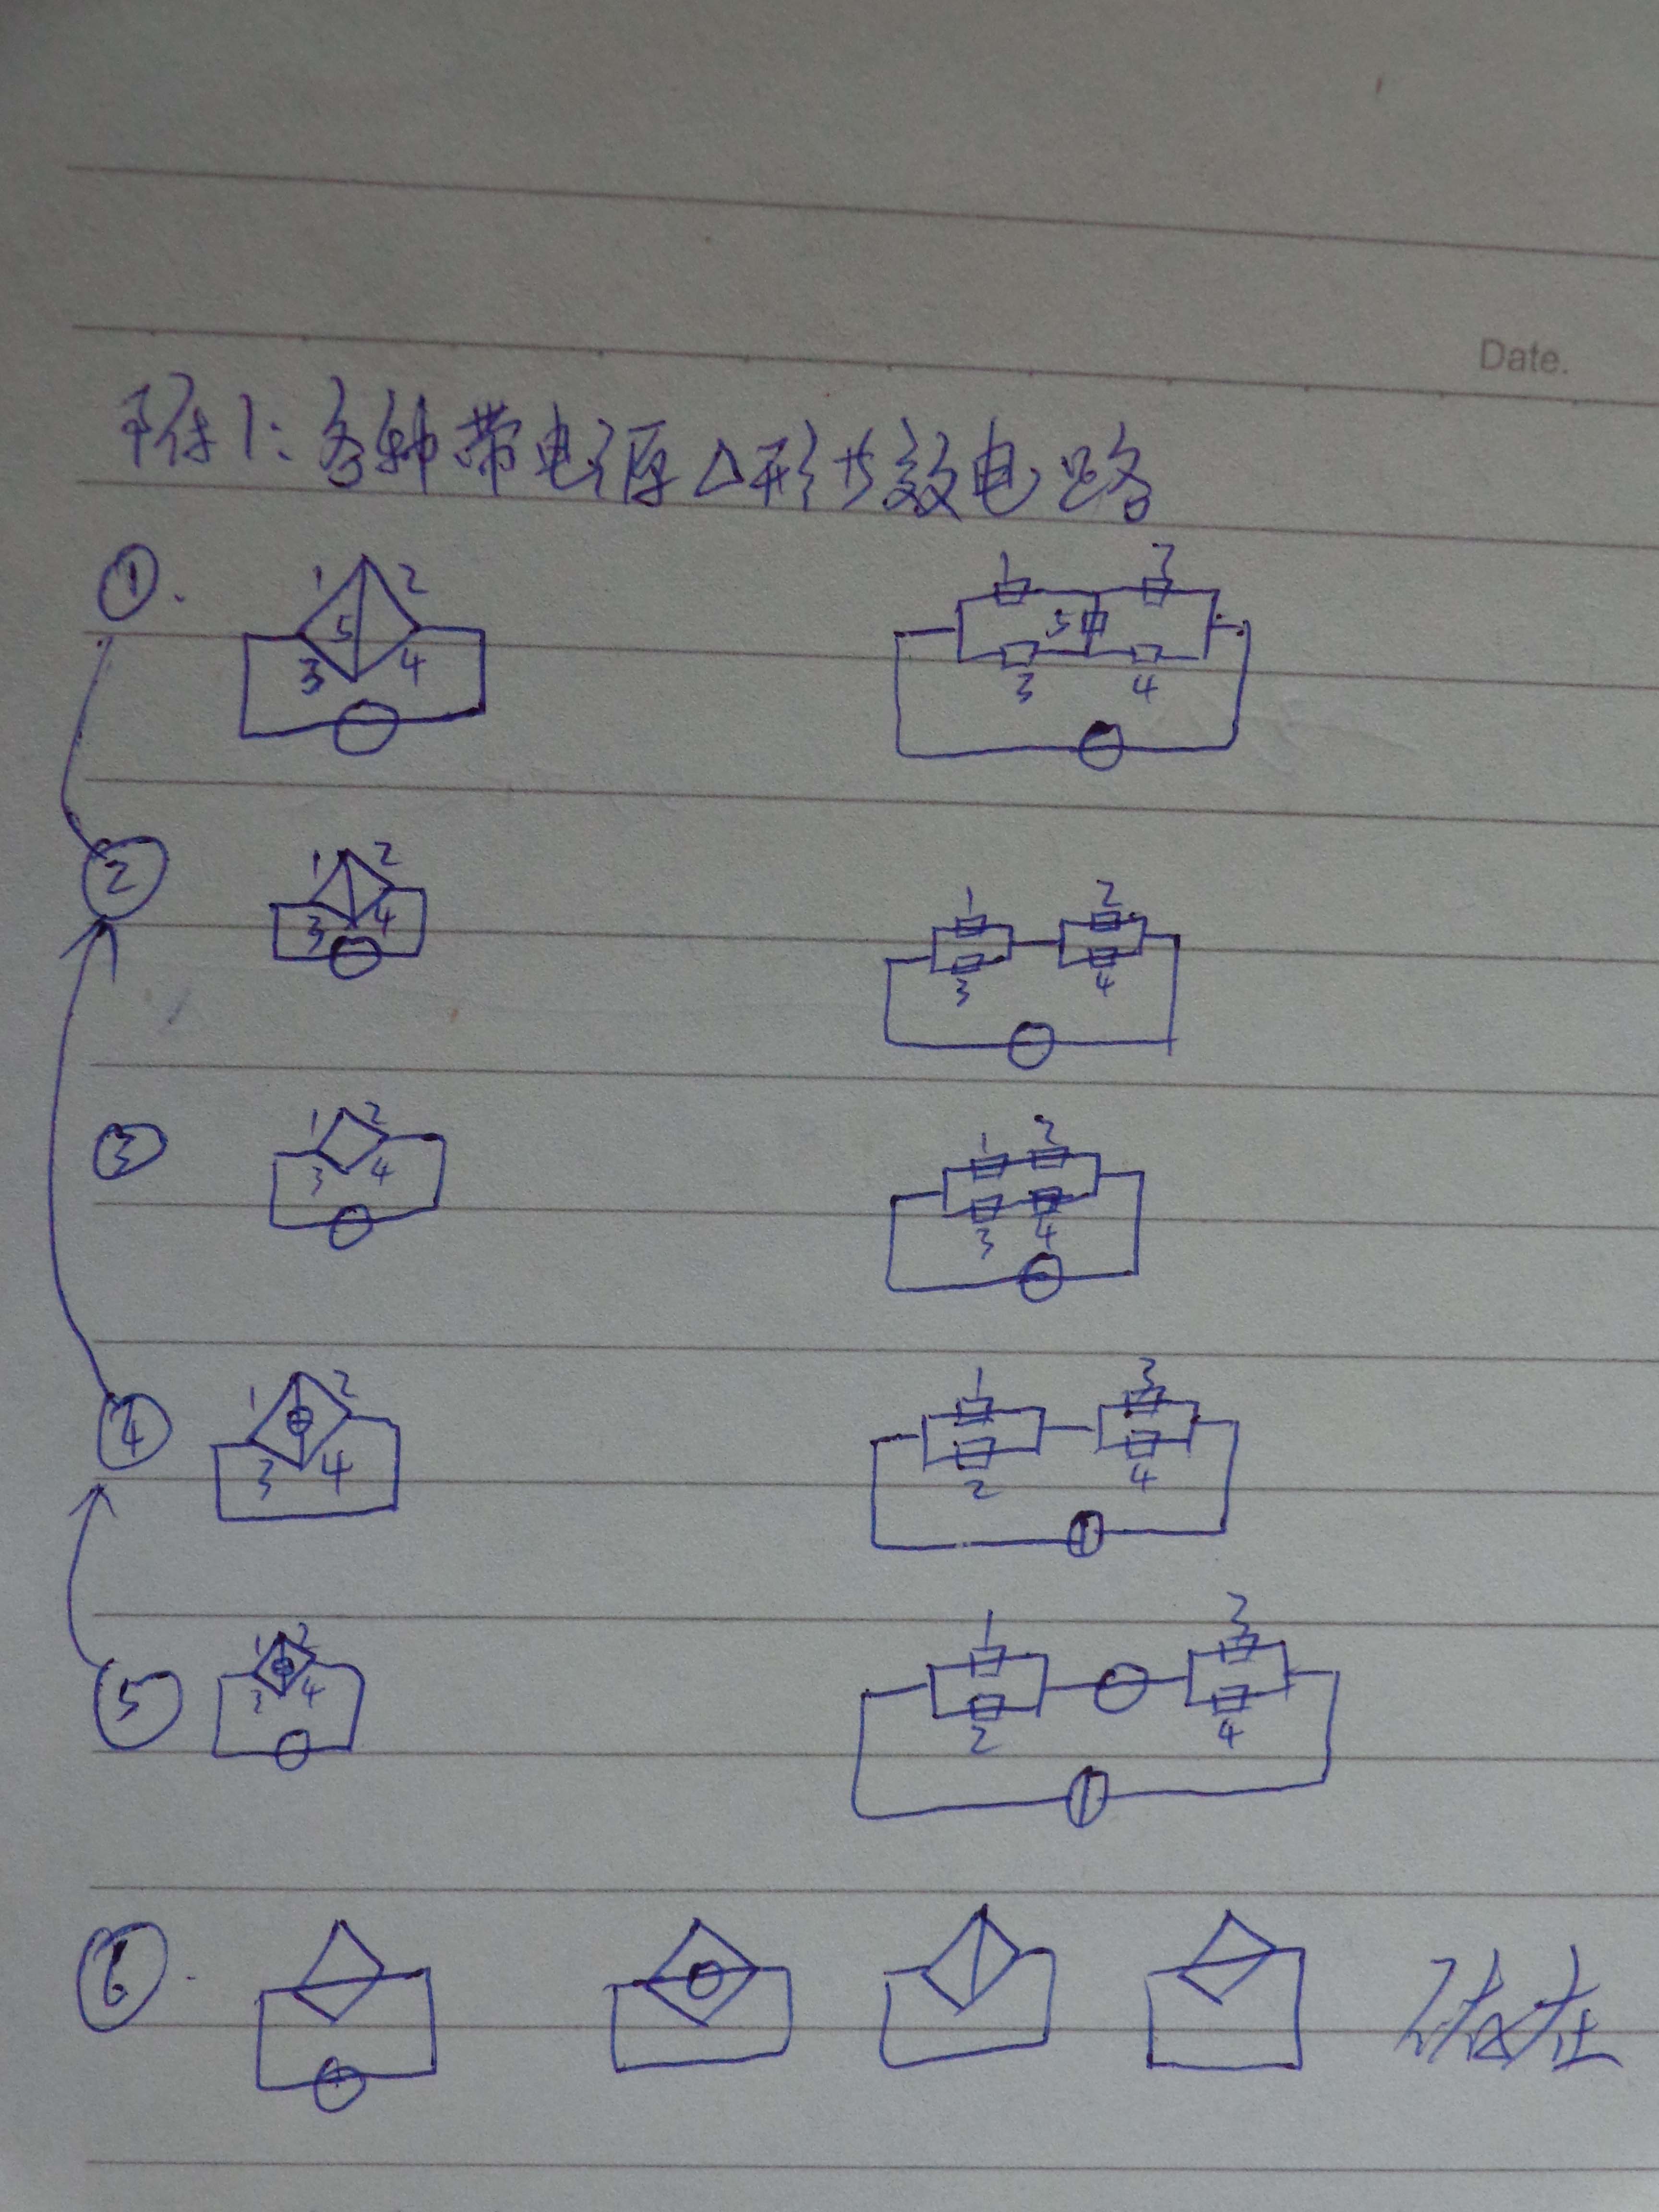 Date.
附1:各种带电源△形等效电路
①.
1 2
5
3 4
1 2
5
3 4
②
1 2
3 4
1 2
3 4
③
1 2
3 4
1 2
3 4
④
1 2
3 4
1 3
2 4
⑤
1 2
3 4
1 3
2 4
⑥.